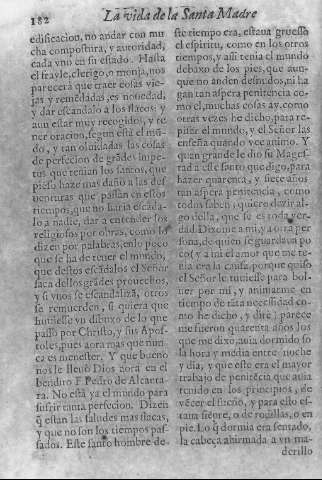 182
La vida de la Santa Madre
edificacion, no andar con mu
cha compostura, y autoridad,
cada vno en su estado. Hasta
el frayle, clerigo, o monja, nos
parecera que traer cosas vie-
jas y remedadas, es nouedad,
y dar escandalo a los flacos: y
aun estar muy recogidos, y te
ner oracion, segun està el mũ
do, y tan oluidadas las cosas
de perfecion de grãdes impe-
tus que tenian los santos, que
pieso haze mas daño a las des
uenturas que passan en estos
tiempos, que no haria escãda-
lo a nadie, dar a entender los
religiosos por obras, como lo
dizen por palabras, en lo poco
que se ha de tener el mundo,
que destos escãdalos el Señor
saca dellos grãdes prouechos,
y si vnos se escandalizã, otros
se remuerden, si quiera que
huuiesse vn dibuxo de lo que
passò por Christo, y sus Apos
toles, pues aora mas que nun-
ca es menester. Y que bueno
nos le lleuò Dios aora en el
bendito F. Pedro de Alcanta-
ra. No està ya el mundo para
sufrir tanta perfecion. Dizen
q̃ estan las saludes mas flacas,
y que no son los tiempos pas-
sados. Este santo hombre de-
ste tiempo era, estaua gruesso
el espiritu, como en los otros
tiempos, y assi tenia el mundo
debaxo de los pies, que aun-
que no anden desnudos, ni ha
gan tan aspera penitencia co-
mo el, muchas cosas ay, como
otras vezes he dicho, para re-
pisar el mundo, y el Señor las
enseña quando vee animo. Y
quan grande le dio su Mages-
tad a este santo que digo, para
hazer quarenta, y siete años
tan aspera penitencia, como
todos saben, quiero dezir al-
go della, que se es toda ver-
dad. Dixome a mi, y a otra per
sona, de quien se guardaua po
co (y a mi el amor que me te-
nia era la causa, porque quiso
el Señor le tuuiesse para bol-
uer por mi, y animarme en
tiempo de tãta necessidad co-
mo he dicho, y dirè) parece
me fueron quarenta años los
que me dixo, auia dormido so
la hora y media entre noche
y dia, y que este era el mayor
trabajo de penitẽcia que auia
tenido en los principios, de
vẽcer el sueño, y para esto es-
taua siẽpre, o de rodillas, o en
pie. Lo q̃ dormia era sentado,
la cabeça arrimada a vn ma-
derillo